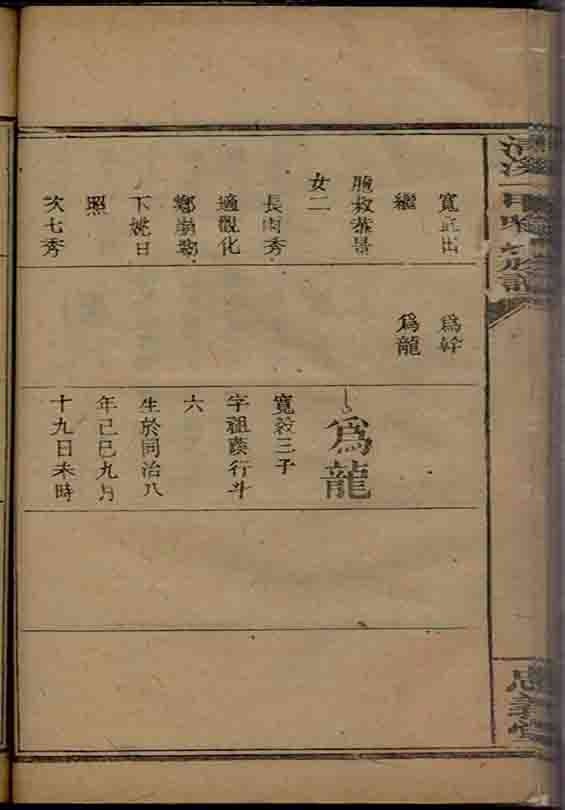 忠義堂
出
繼
胞叔恭景
女二
長南秀
適觀化
鄉
下姚日
照
次七秀
爲幹
爲龍
爲龍
寬毅三子
字祖 行斗
六
生於同治八
年己巳九月
十九日未時